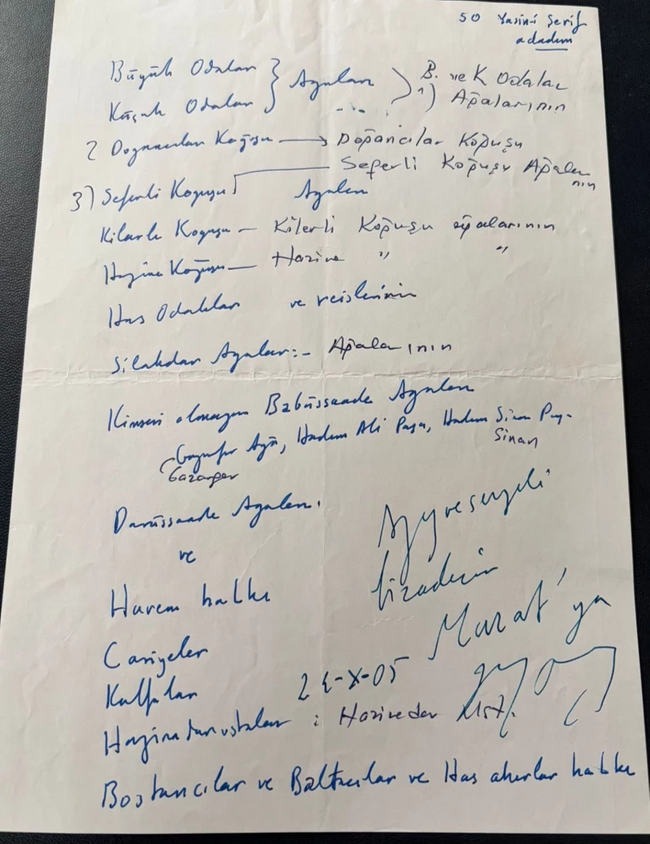 50 Yasin-i Şerif
adadım
Büyük Odaları } Ağaları ) B. ve K Odalar
Küçük Odaları 1) Ağalarının
2 Doğancılar Koğuşu → Doğancılar Koğuşu
Seferli Koğuşu Ağaları
nın
3) Seferli Koğuşu Ağaları
Kilerli Koğuşu – Kilerli Koğuşu ağalarının
Hazine Koğuşu – Hazine " "
Has Odalılar ve reislerinin
Silahdar Ağaları:- Ağalarının
Kimsesi olmayan Babüssaade Ağaları
Gazanfer Ağa, Hadım Ali Paşa, Hadım Sinan Pş.
Gazanfer Sinan
Darüssaade Ağaları.
ve
Harem halkı
Cariyeler
Kalfalar
Hazinedar ustalar : Hazinedar Ust.
Bostancılar ve Baltacılar ve Has ahırlar halkı
biraderim
Murat'ya
24-X-05